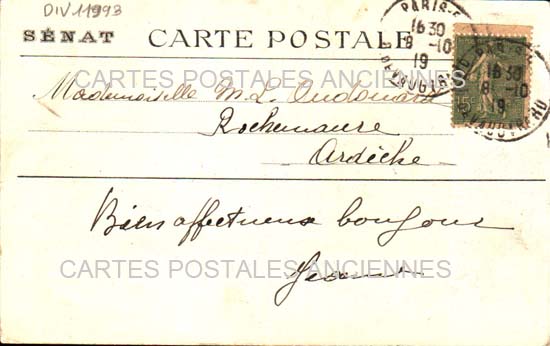 DIV11993
SÉNAT CARTE POSTALE
PARIS
16 30
8 -10
19
15c
PARIS
16 30
8 -10
19
CARTES POSTALES ANCIENNES
Mademoiselle M. L.
Rochemaure
Ardèche
Bien affectueux bonjour
CARTES POSTALES ANCIENNES